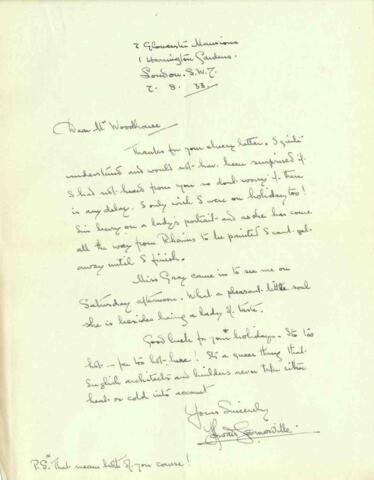 2 Gloucester Mansions
1 Harrington Gardens.
London. S.W.7.
2. 8. 33.
Dear Mr Woodhouse
Thanks for your cheery letter. I quite
understand and would not have been surprised if
I had not heard from you so dont worry if there
is any delay. I only wish I were on holiday too!
I'm busy on a lady's portrait and as she has come
all the way from to be painted I cant get
away until I finish.
Miss Gray came in to see me on
Saturday afternoon. What a pleasant little soul
she is besides being a lady of taste.
Good luck for yourx holidays. It's too
hot — far too hot here! It's a queer thing that
English architects and builders never take either
heat or cold into account
Yours Sincerely
P.S.x That means both of you course!